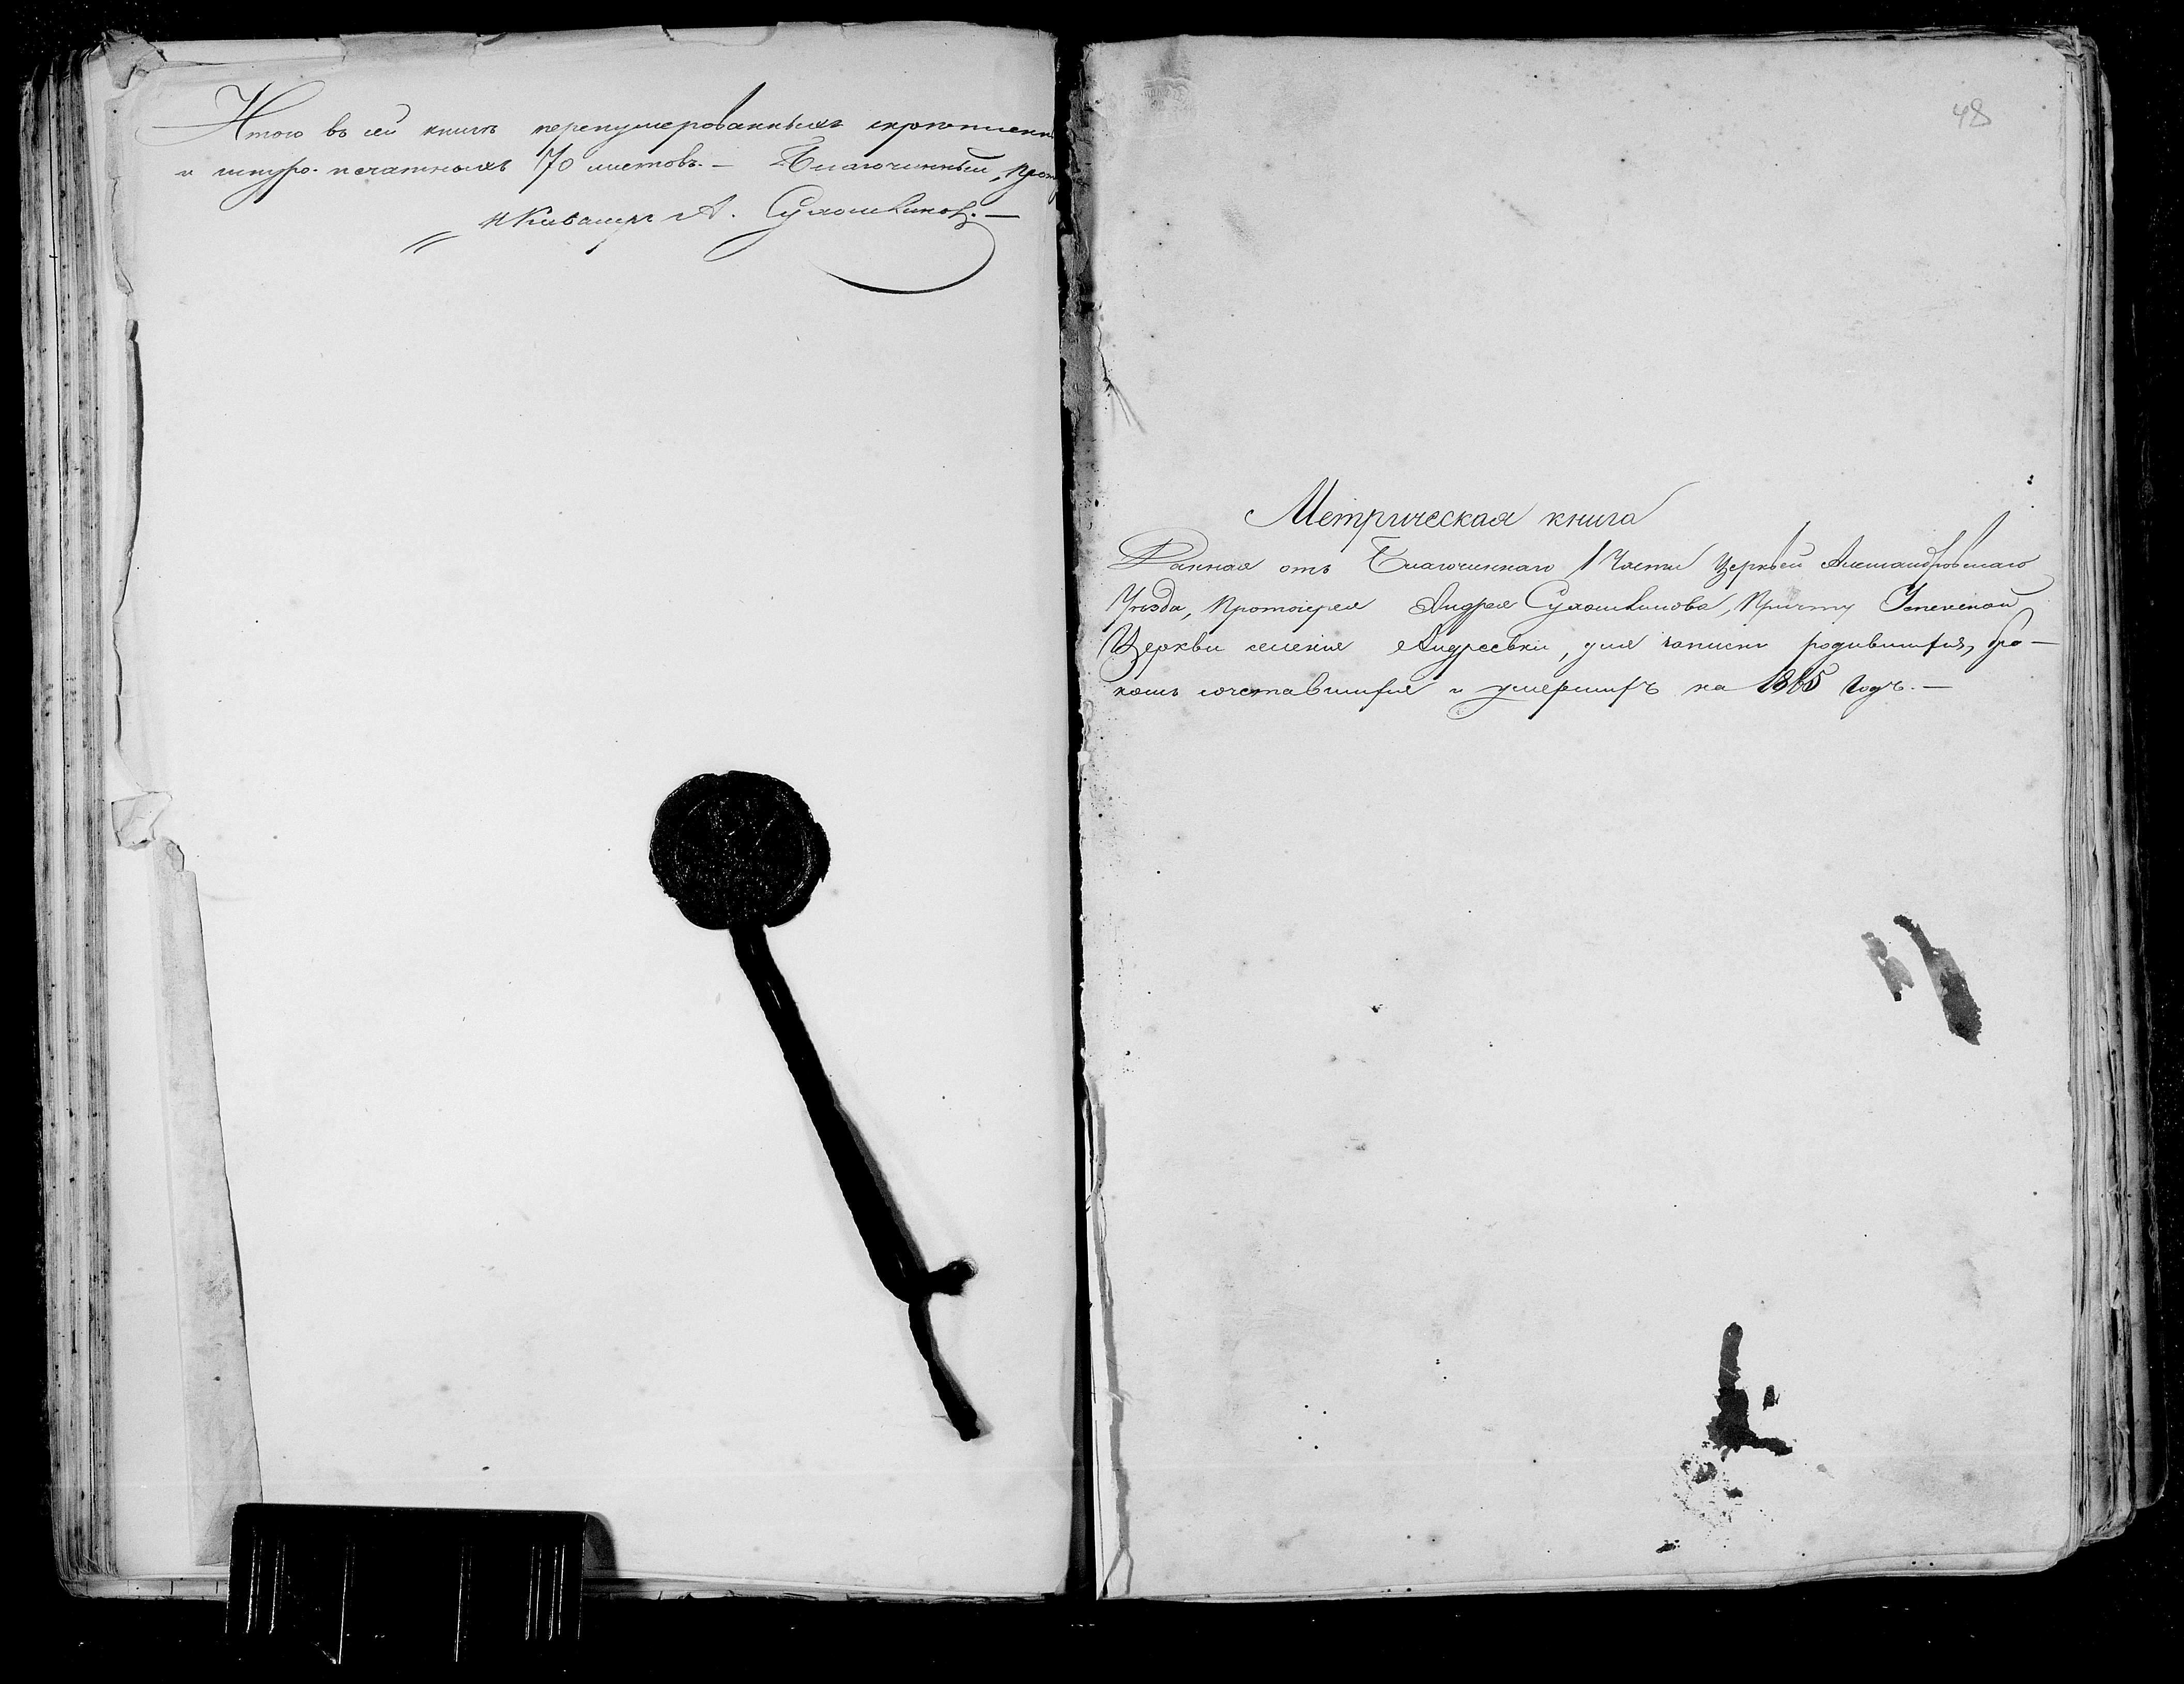 Итого въ сей книгѣ перенумерованныхъ скрѣпленн
и шнуро-печатныхъ 70 листовъ. — Благочинный, Прот
и Кавалеръ А. Сухошкиновъ. —
48
Метрическая книга
Данная отъ Благочиннаго 1 Части Церквей Александровскаго
Уѣзда, Протоіерея Андрея Сухошкинова, Причту Успенской
Церкви селенія Андреевки, для записи родившихся, бра-
комъ сочетавшихся и умершихъ на 1865 годъ. —